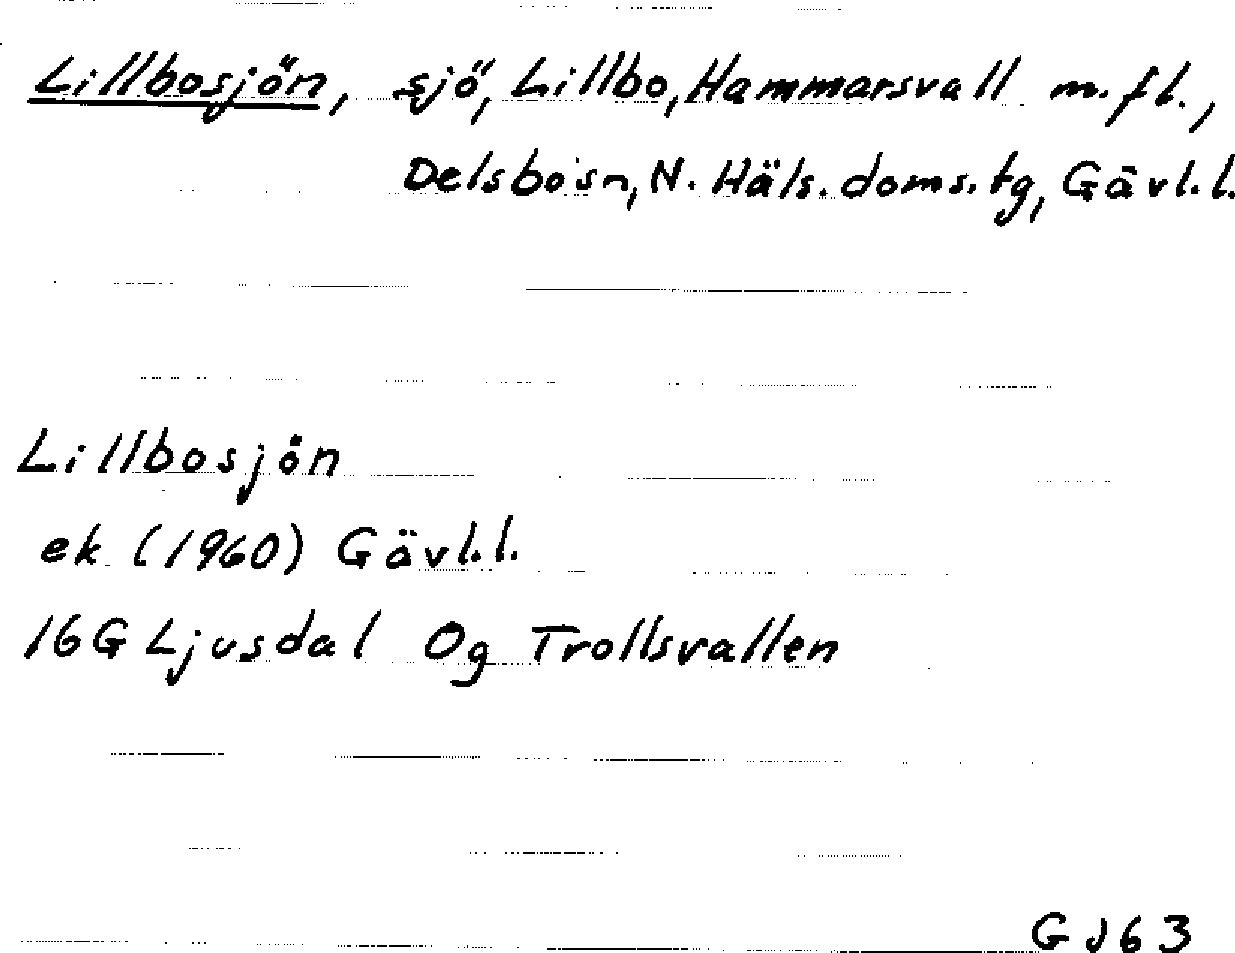 Lillbosjön, sjö, Lillbo, Hammarsvall m.fl.,
Delsbo sn, N. Häls. doms. tg, Gävl.l.
Lillbosjön
ek (1960) Gävl.l.
16G Ljusdal 0g Trollsvallen
GJ63